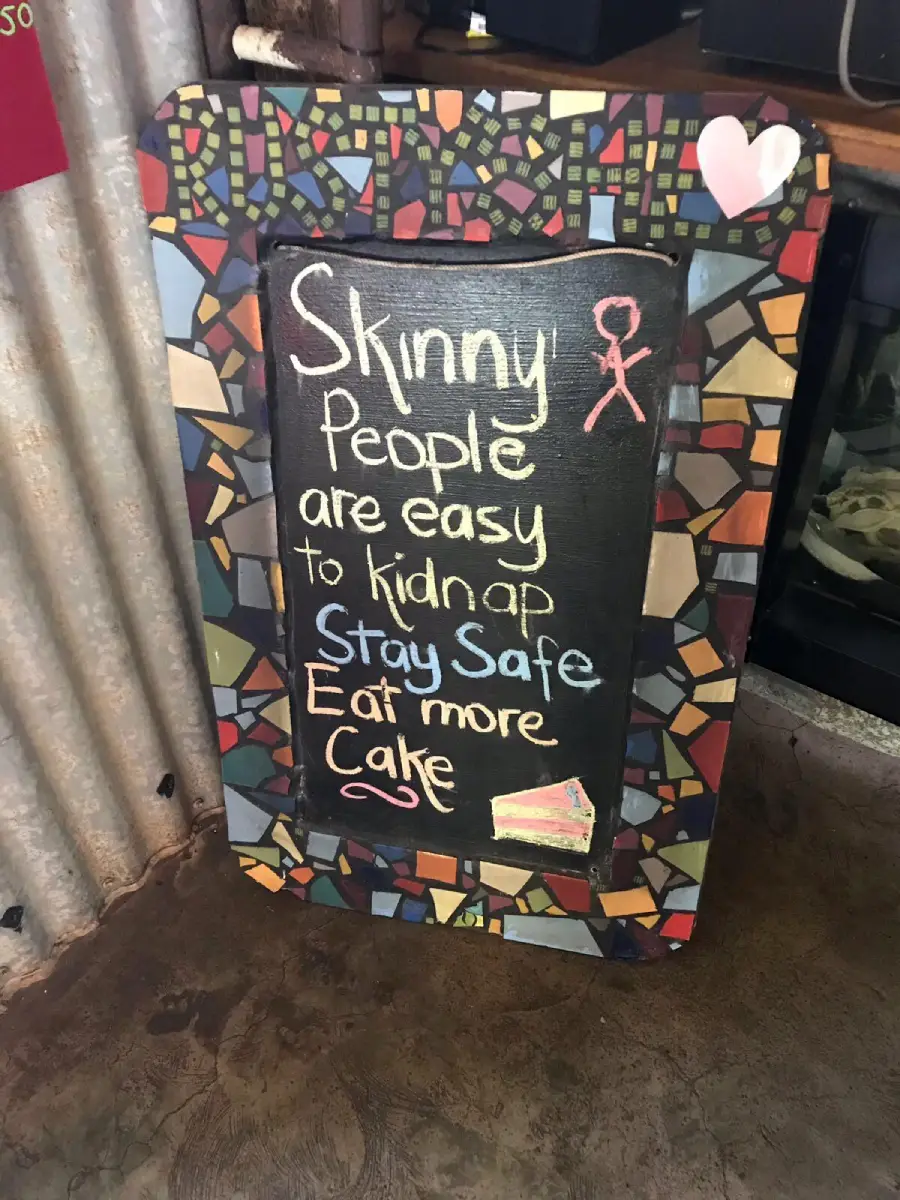 50
Skinny
People
are easy
to kidnap
Stay Safe
Eat more
Cake